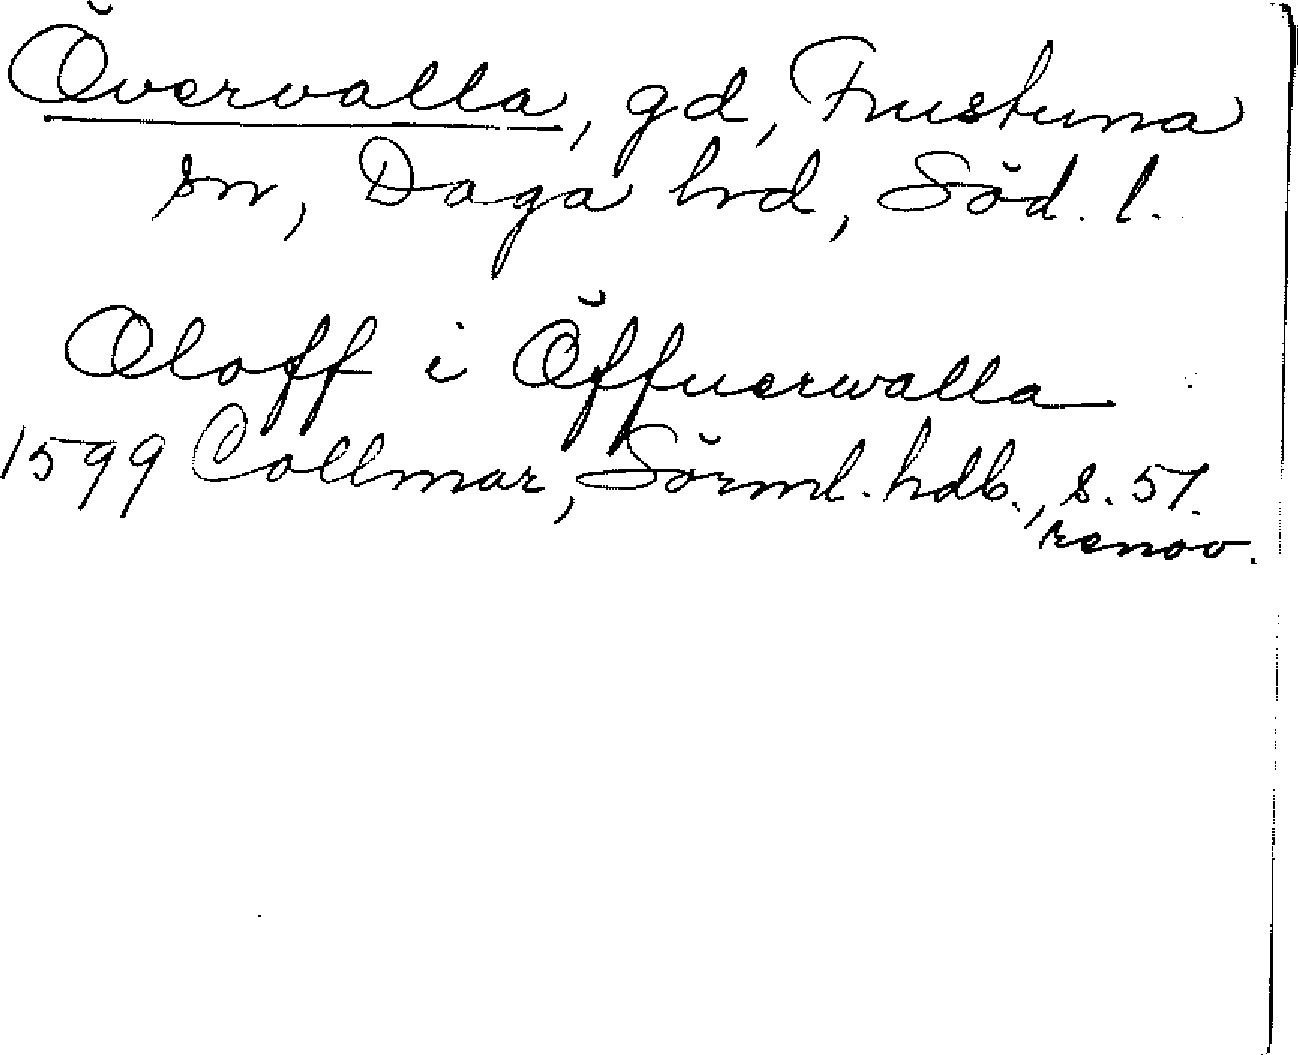 Övervalla, gd, Frustuna
sn, Daga hrd, Söd. l.
Oloff i Öffuerwalla
1599 Collmar, Sörml. hdb., s. 57.
renov.